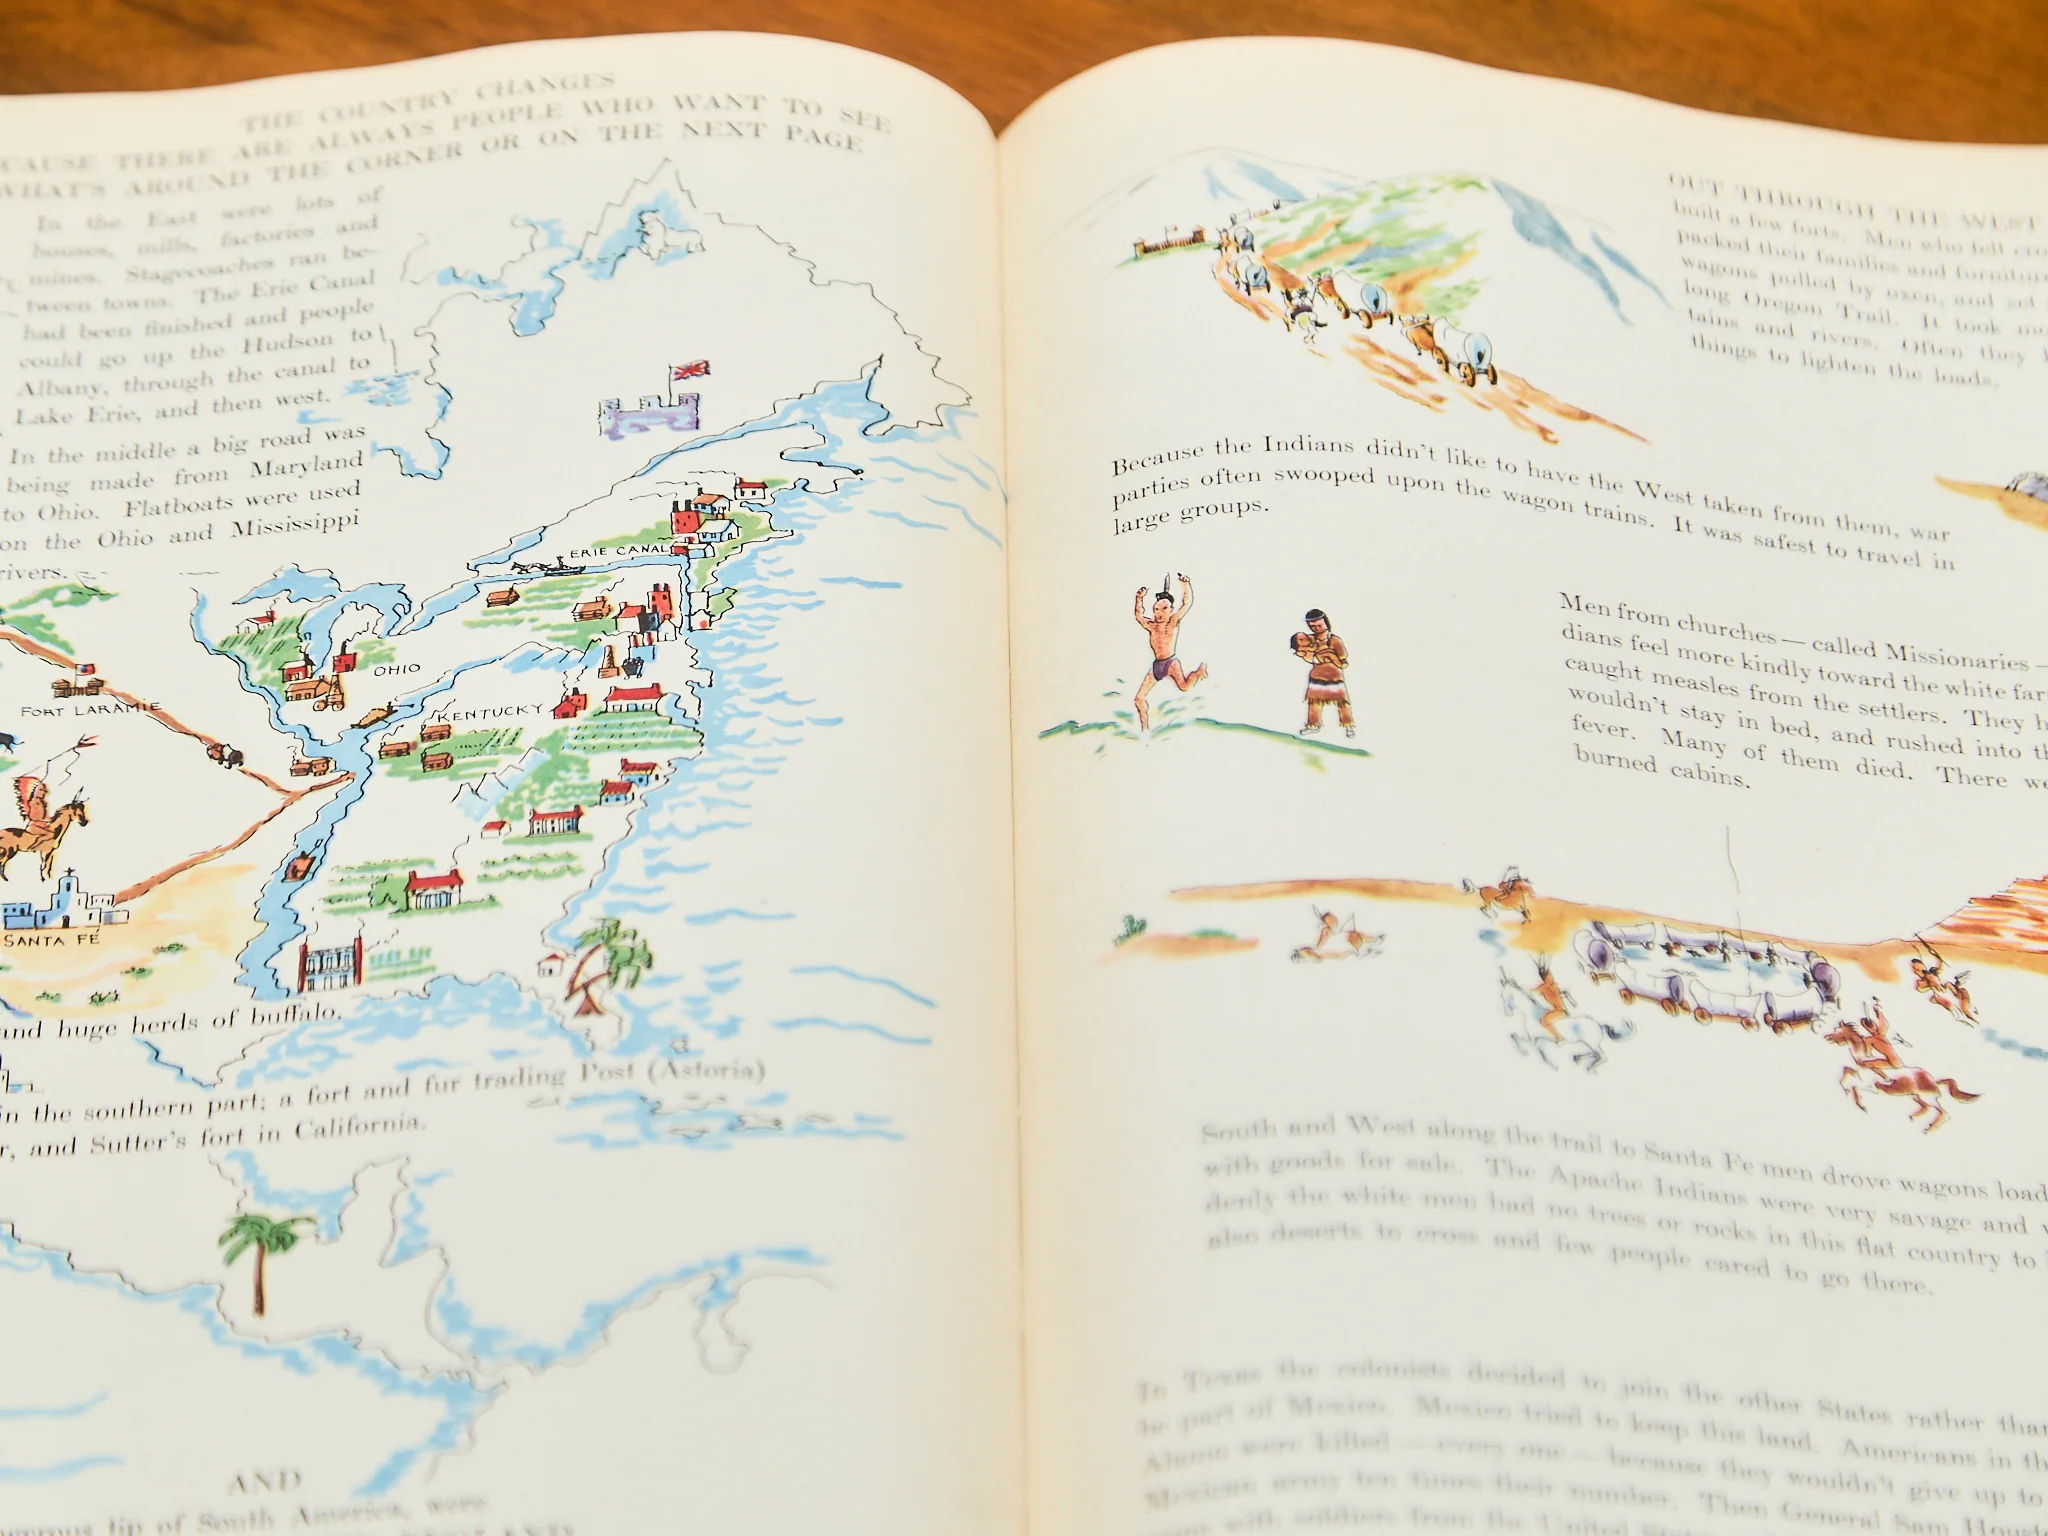 THE COUNTRY CHANGES
CAUSE THERE ARE ALWAYS PEOPLE WHO WANT TO SEE
WHAT'S AROUND THE CORNER OR ON THE NEXT PAGE
In the East were lots of
houses, mills, factories and
mines. Stagecoaches ran be-
tween towns. The Erie Canal
had been finished and people
could go up the Hudson to
Albany, through the canal to
Lake Erie, and then west.
In the middle a big road was
being made from Maryland
to Ohio. Flatboats were used
on the Ohio and Mississippi
rivers.
ERIE CANAL
OHIO
KENTUCKY
FORT LARAMIE
SANTA FE
and huge herds of buffalo.
in the southern part; a fort and fur trading Post (Astoria)
r, and Sutter's fort in California.
AND
tip of South America, were
OUT THROUGH THE WEST
built a few forts. Men who fell
packed their families and furniture
wagons pulled by oxen, and set
long Oregon Trail. It took
tains and rivers. Often they
things to lighten the loads.
Because the Indians didn't like to have the West taken from them, war
parties often swooped upon the wagon trains. It was safest to travel in
large groups.
Men from churches — called Missionaries —
dians feel more kindly toward the white far
caught measles from the settlers. They h
wouldn't stay in bed, and rushed into th
fever. Many of them died. There we
burned cabins.
South and West along the trail to Santa Fe men drove wagons load
with goods for sale. The Apache Indians were very savage and
denly the white men had no trees or rocks in this flat country to
also deserts to cross and few people cared to go there.
In Texas the colonists decided to join the other States rather than
be part of Mexico. Mexico tried to keep this land. Americans in the
Alamo were killed — every one — because they wouldn't give up to
Mexican army ten times their number. Then General Sam Houst
with soldiers from the United